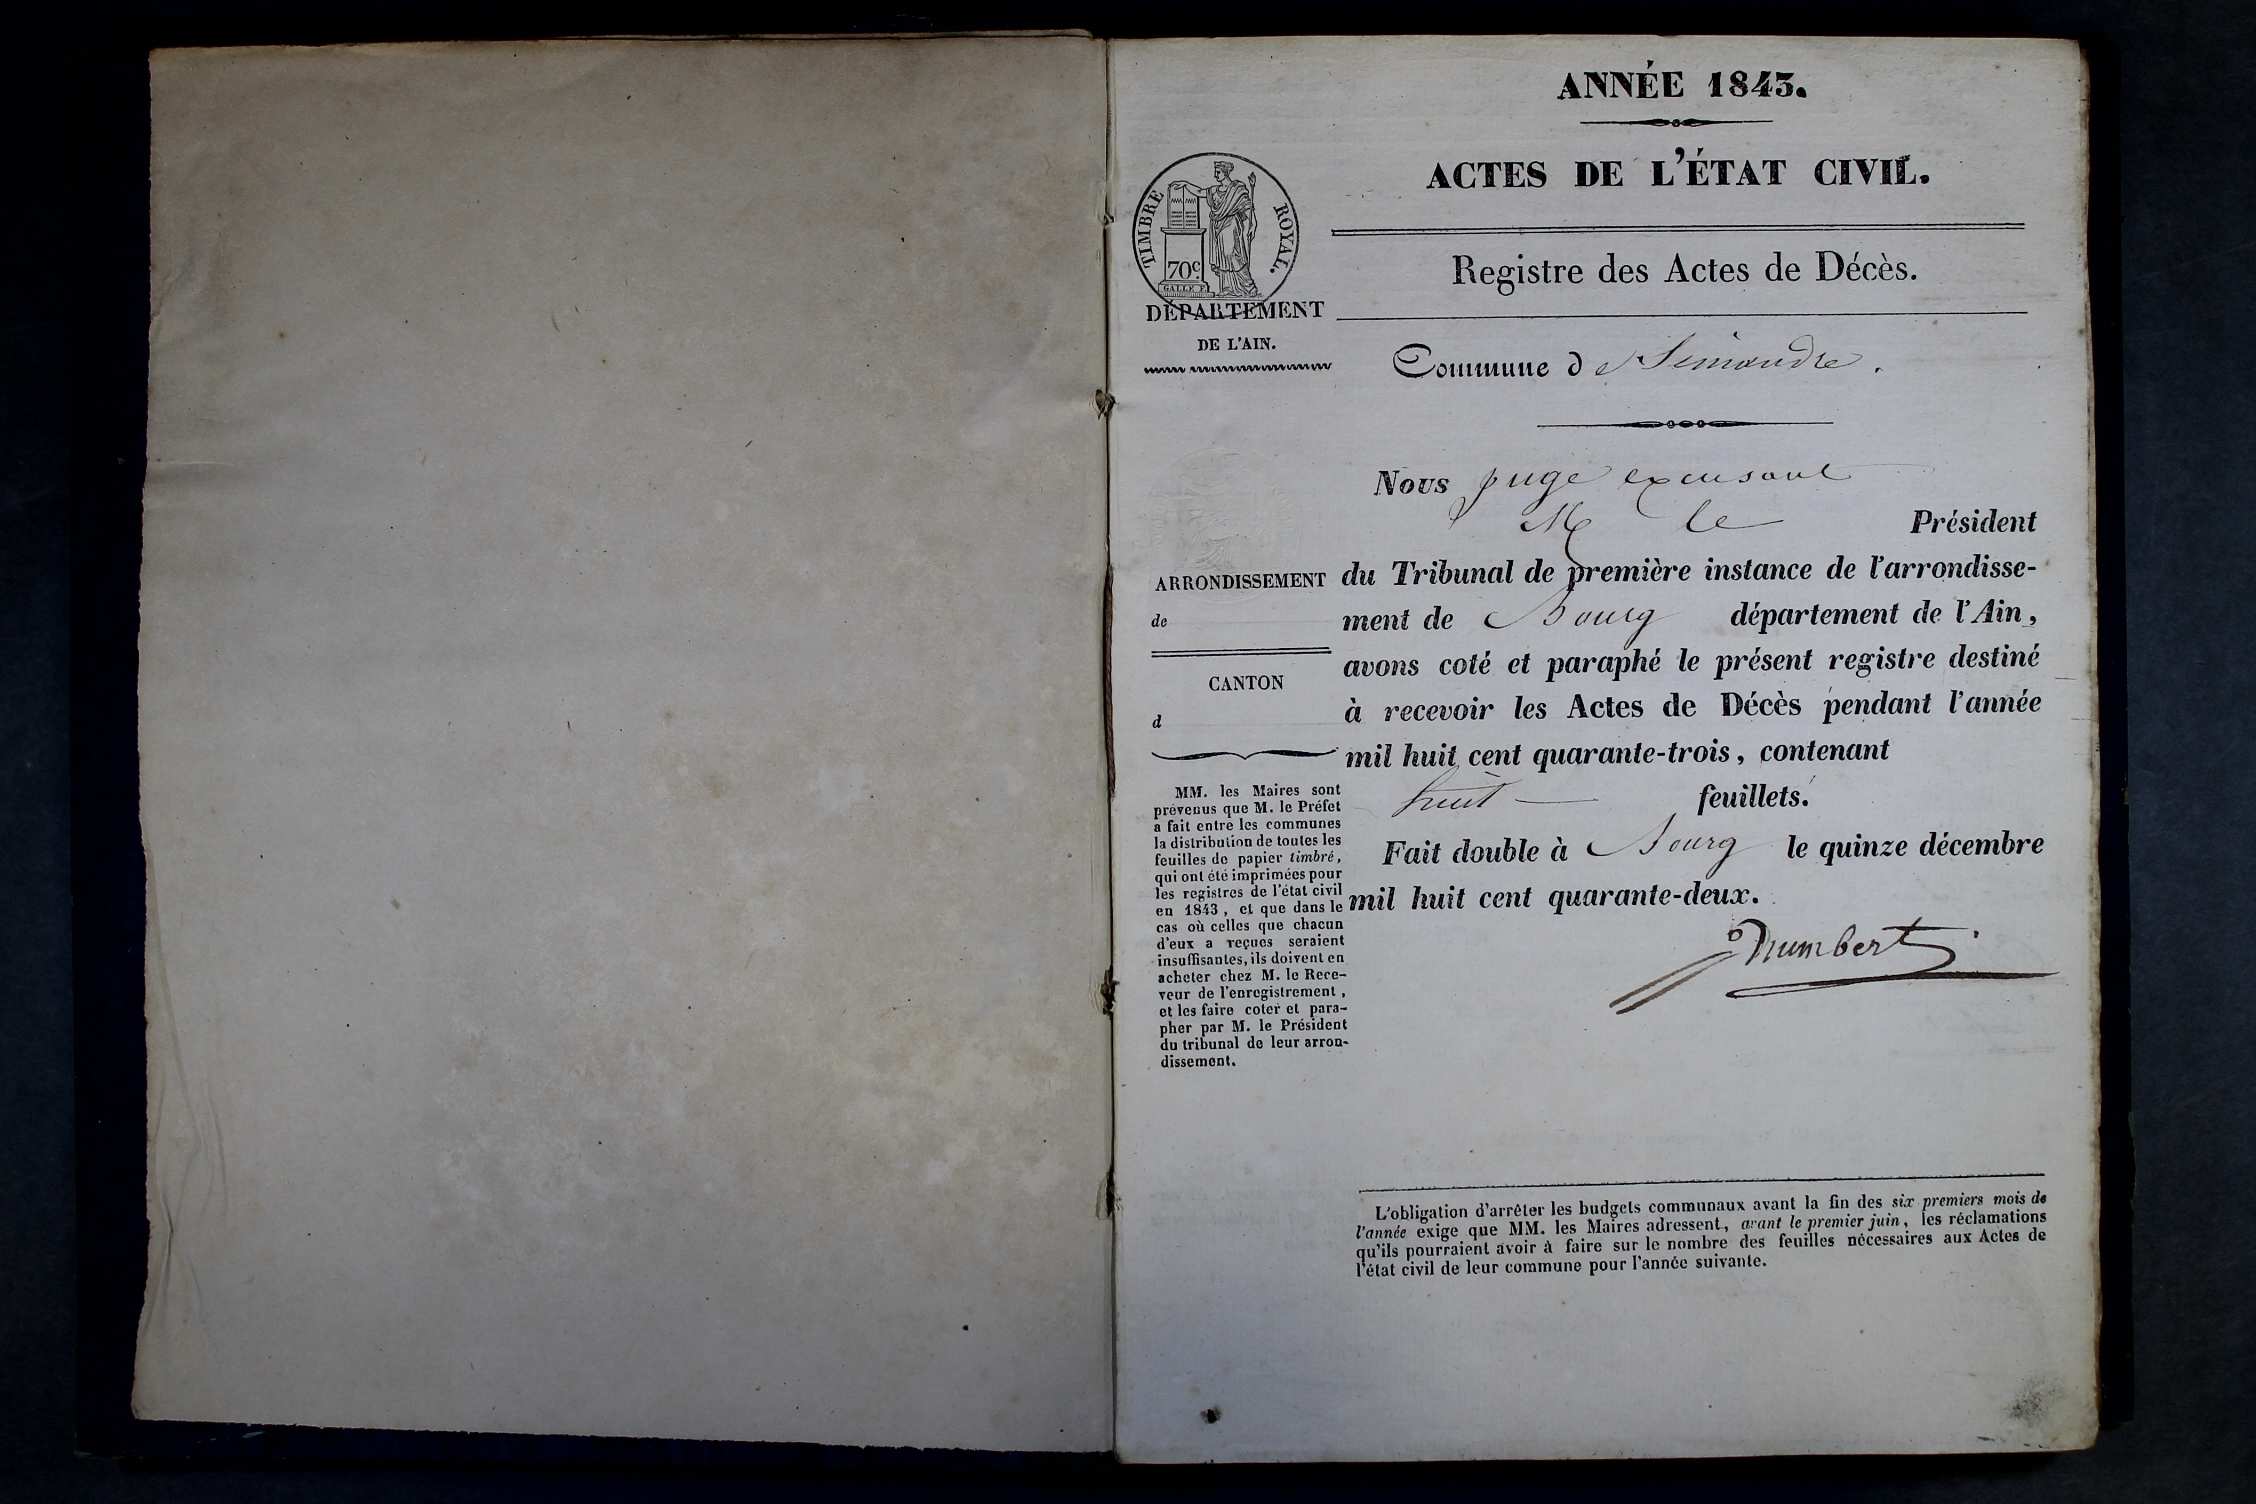 ANNÉE 1843.
ACTES DE L'ÉTAT CIVIL.
TIMBRE ROYAL.
70c
Registre des Actes de Décès.
DÉPARTEMENT
DE L'AIN.
Commune de Simandre.
Nous juge excusant
M le Président
ARRONDISSEMENT
de
CANTON
d
du Tribunal de première instance de l'arrondisse-
ment de Bourg département de l'Ain,
avons coté et paraphé le présent registre destiné
à recevoir les Actes de Décès pendant l'année
mil huit cent quarante-trois, contenant
huit feuillets.
Fait double à Bourg le quinze décembre
mil huit cent quarante-deux.
MM. les Maires sont
prévenus que M. le Préfet
a fait entre les communes
la distribution de toutes les
feuilles de papier timbré,
qui ont été imprimées pour
les registres de l'état civil
en 1843, et que dans le
cas où celles que chacun
d'eux a reçues seraient
insuffisantes, ils doivent en
acheter chez M. le Rece-
veur de l'enregistrement,
et les faire coter et para-
pher par M. le Président
du tribunal de leur arron-
dissement.
L'obligation d'arrêter les budgets communaux avant la fin des six premiers mois de
l'année exige que MM. les Maires adressent, avant le premier juin, les réclamations
qu'ils pourraient avoir à faire sur le nombre des feuilles nécessaires aux Actes de
l'état civil de leur commune pour l'année suivante.